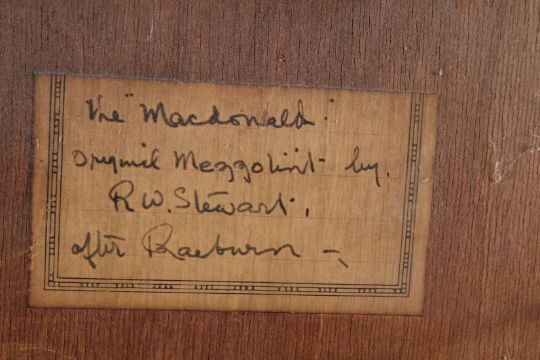 The "Macdonald".
Original Mezzotint by.
R.W. Stewart.
after Raeburn -